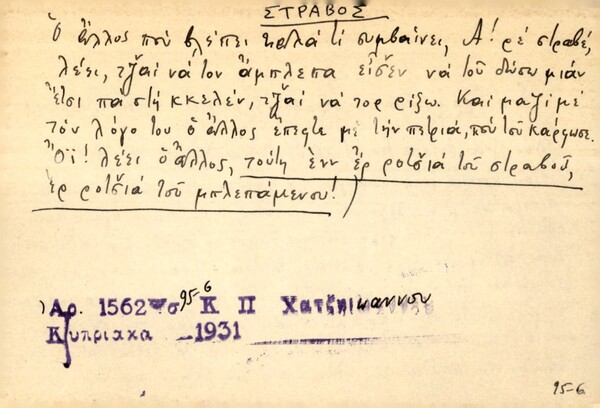 ΣΤΡΑΒΟΣ
Ὁ ἄλλος ποὺ βλέπει καλὰ τί συμβαίνει, Ἀ! ρὲ στραβέ,
λέει, τζ̆αὶ νὰ τον ἄμπλεπα εἶσεν νὰ τοῦ δώσω μιὰν
ἔτσι πὰ στὴ κκελέν, τζ̆αὶ νὰ τορ ρίξω. Καὶ μαζὶ μὲ
τὸν λόγο του ὁ ἄλλος ἔπεφτε μὲ τὴν πετριά, ποὺ τοῦ κάρφωσε.
Ὄϊ! λέει ὁ ἄλλος, τούτη ἔνν ἐρ ροτσ̆ιὰ τοῦ στραβοῦ,
ἐρ ροτσ̆ιά τοῦ μπλεπάμενου!)
Αρ. 1562 σ 95-6 Κ Π Χατζηιωάννου
Κυπριακα 1931
95-6